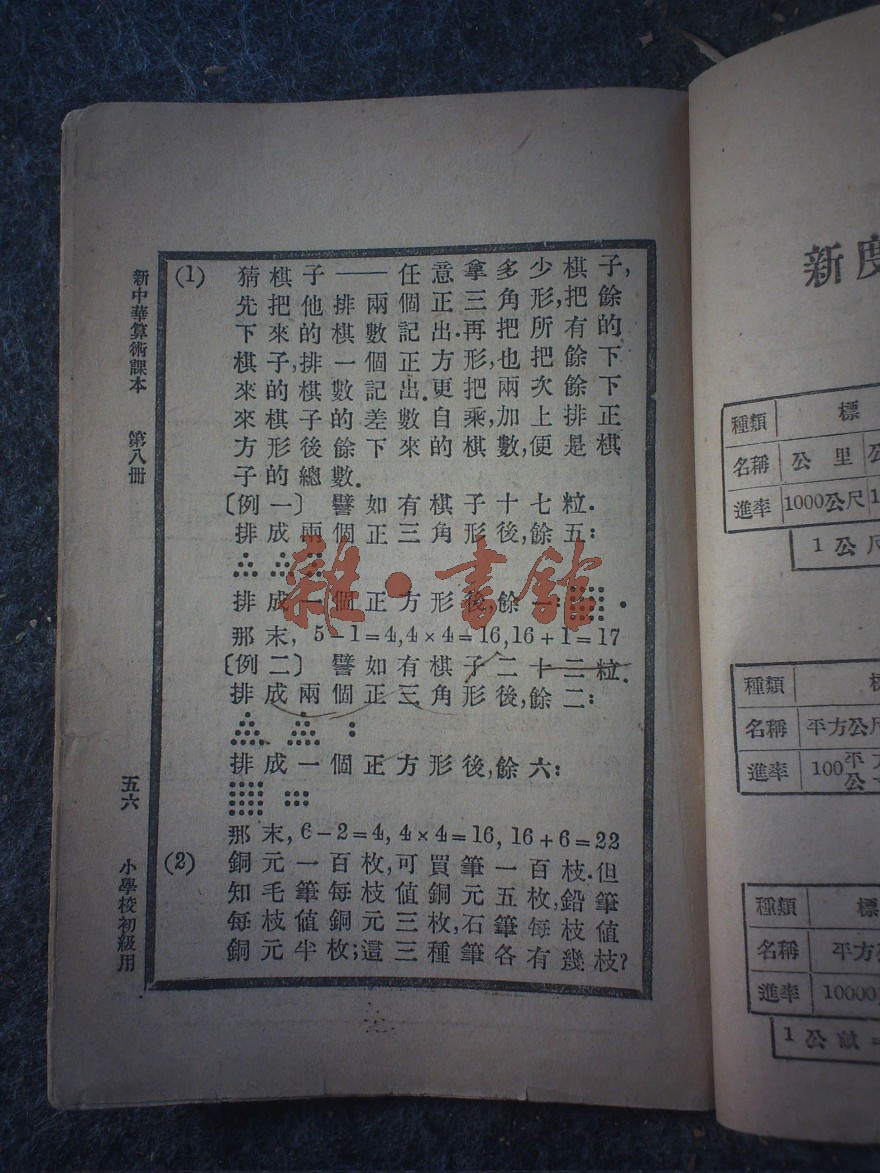 新中華算術課本 第八冊
五六
小學校初級用
(1) 猜棋子——任意拿多少棋子,
先把他排兩個正三角形,把餘
下來的棋數記出.再把所有的
棋子,排一個正方形,也把餘下
來的棋數記出.更把兩次餘下
來棋子的差數自乘,加上排正
方形後餘下來的棋數,便是棋
子的總數.
〔例一〕 譬如有棋子十七粒.
排成兩個正三角形後,餘五:
排成一個正方形後,餘一:
那末, 5-1=4, 4×4=16, 16+1=17
〔例二〕 譬如有棋子二十二粒.
排成兩個正三角形後,餘二:
排成一個正方形後,餘六:
那末, 6-2=4, 4×4=16, 16+6=22
(2) 銅元一百枚,可買筆一百枝.但
知毛筆每枝値銅元五枚,鉛筆
每枝値銅元三枚,石筆每枝値
銅元半枚;這三種筆各有幾枝?
雜·書館
新度
種類 標
名稱 公里 公
進率 1000公尺 1
1公尺
種類 標
名稱 平方公尺
進率 100平方公寸
種類 標
名稱 平方公
進率 10000
1公畝=